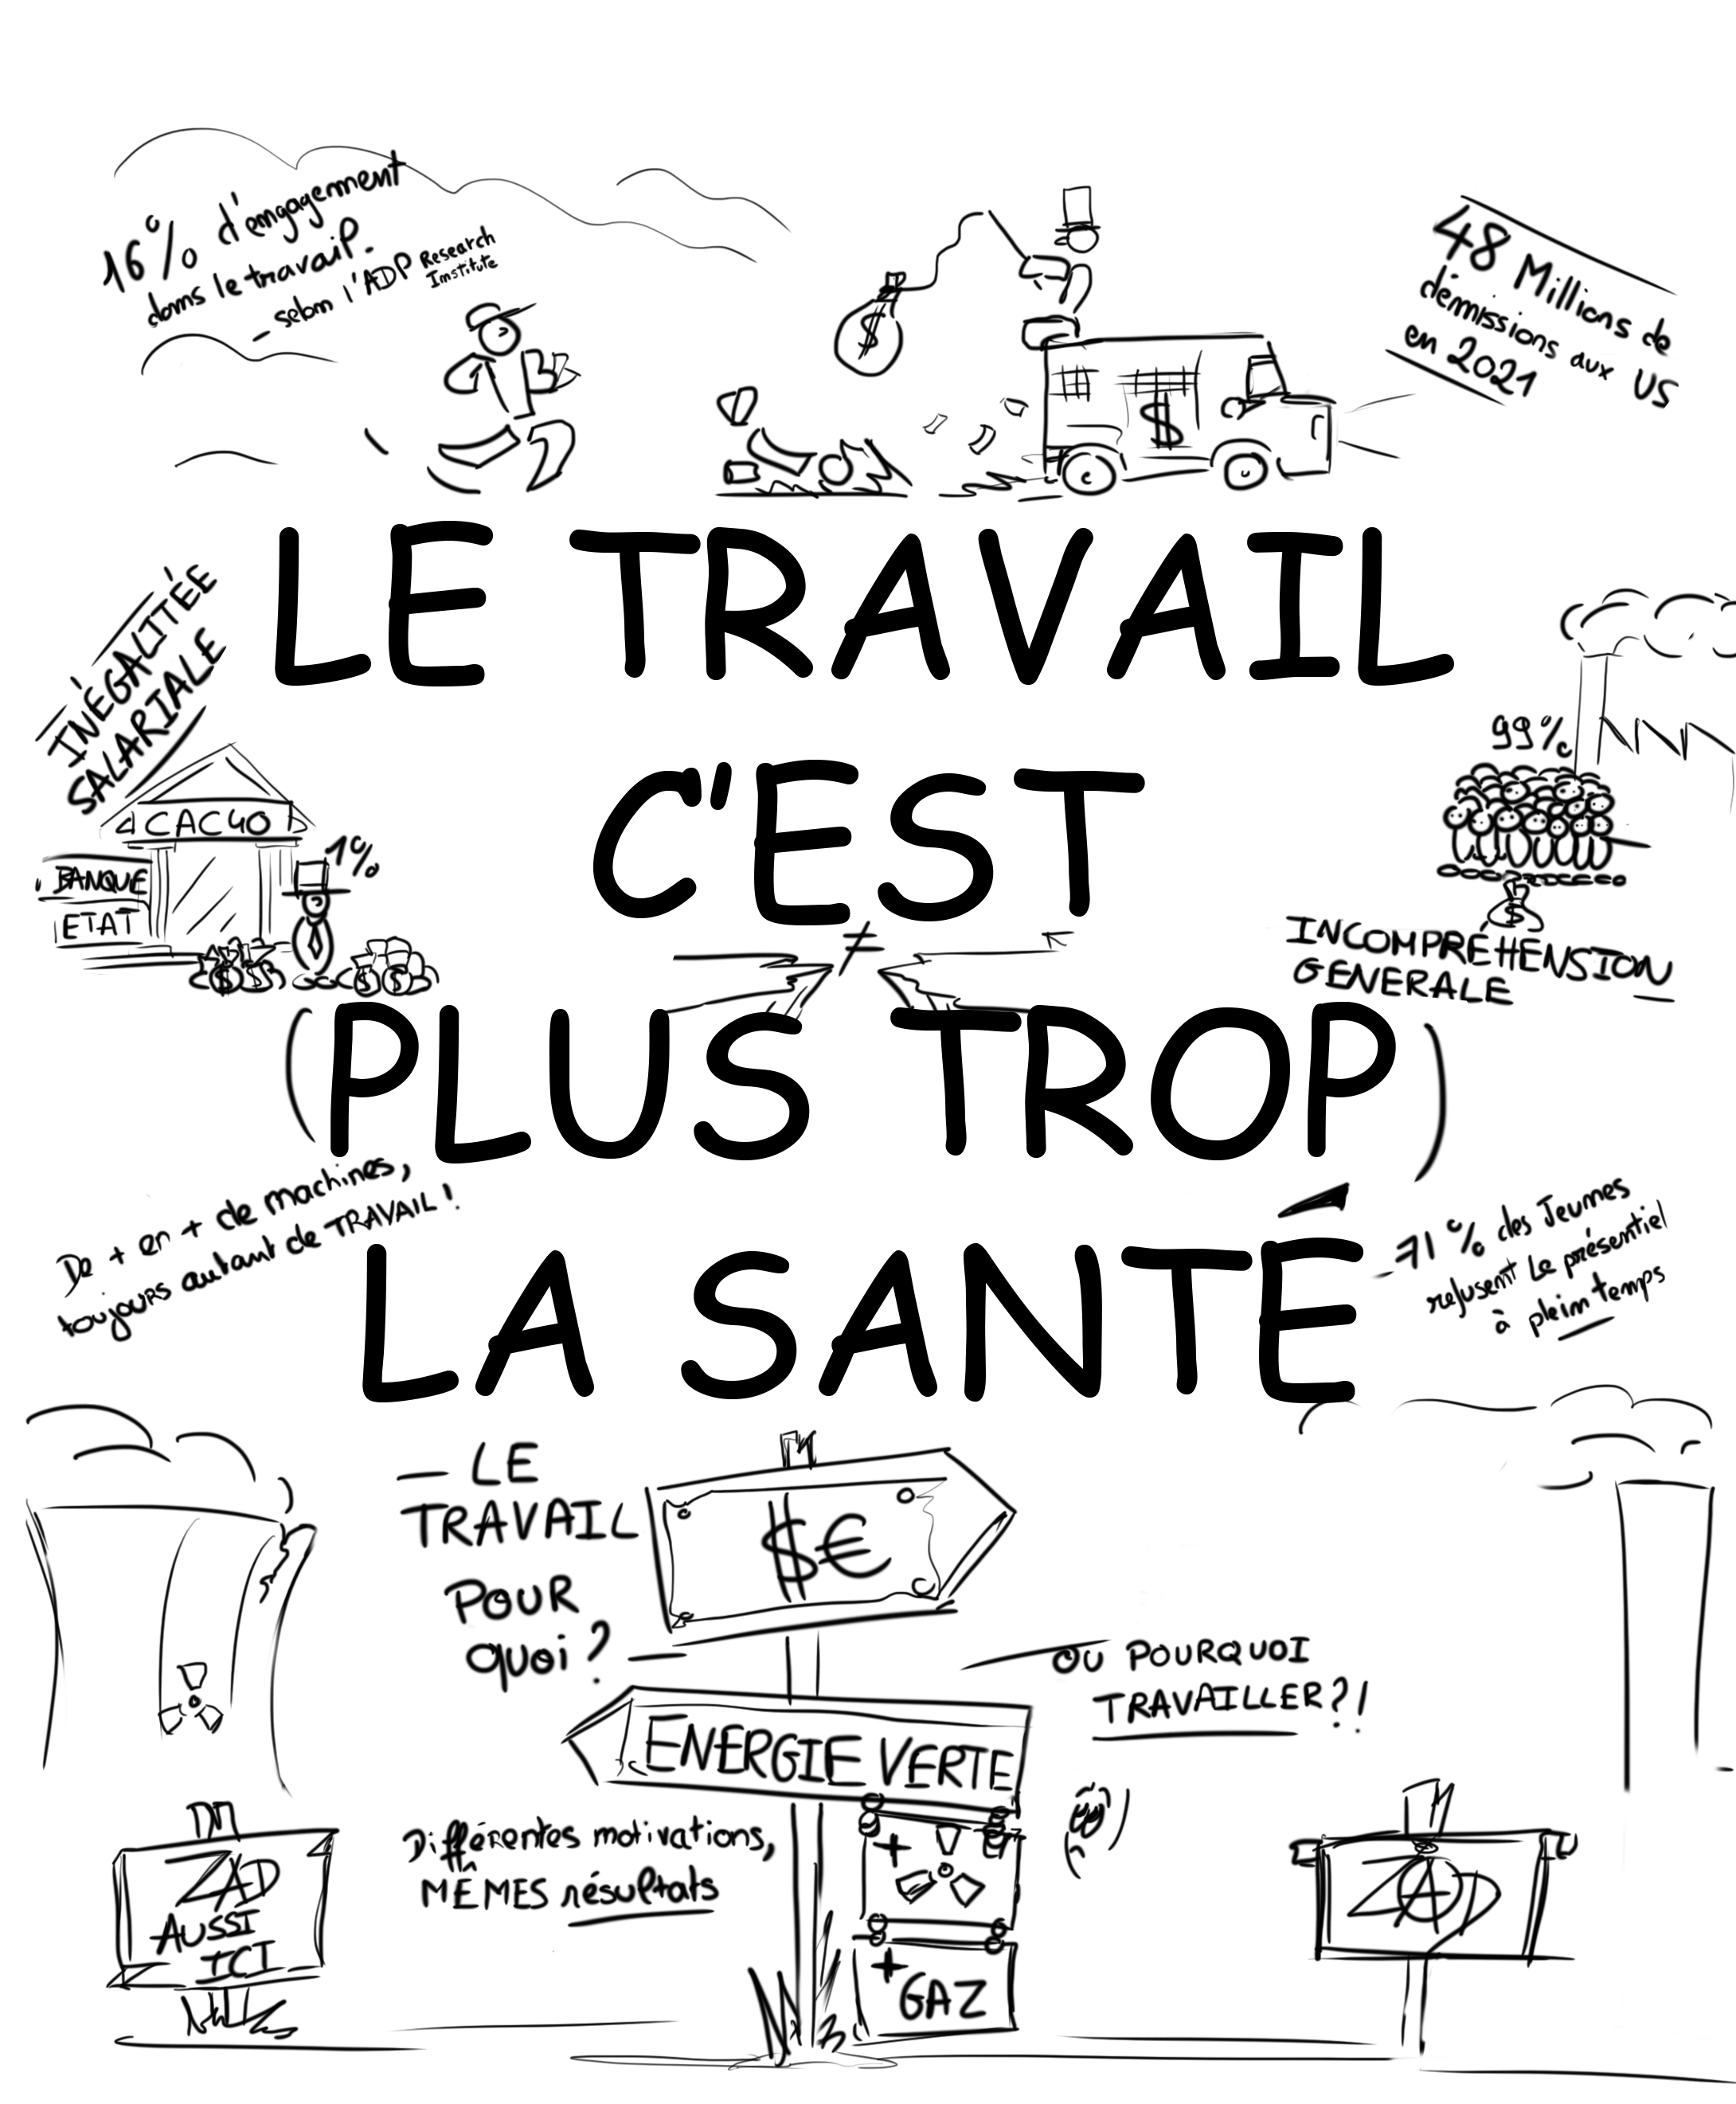 16% d'engagement
dans le travail.
- selon l'ADP Research
Institute
48 Millions de
démissions aux US
en 2021
$
$
LE TRAVAIL
INÉGALITÉE
SALARIALE
CAC40
1%
BANQUE
ETAT
$ $ $ $
99%
$
INCOMPRÉHENSION
GENERALE
C'EST
≠
(PLUS TROP)
De + en + de machines,
toujours autant de TRAVAIL!
71% des Jeunes
refusent le présentiel
à plein temps
LA SANTÉ
— LE
TRAVAIL
POUR
quoi? —
$€
OU POURQUOI
TRAVAILLER?!
ENERGIE VERTE
Différentes motivations,
MÊMES résultats
+
+ GAZ
ZAD
AUSSI
ICI
ZAD